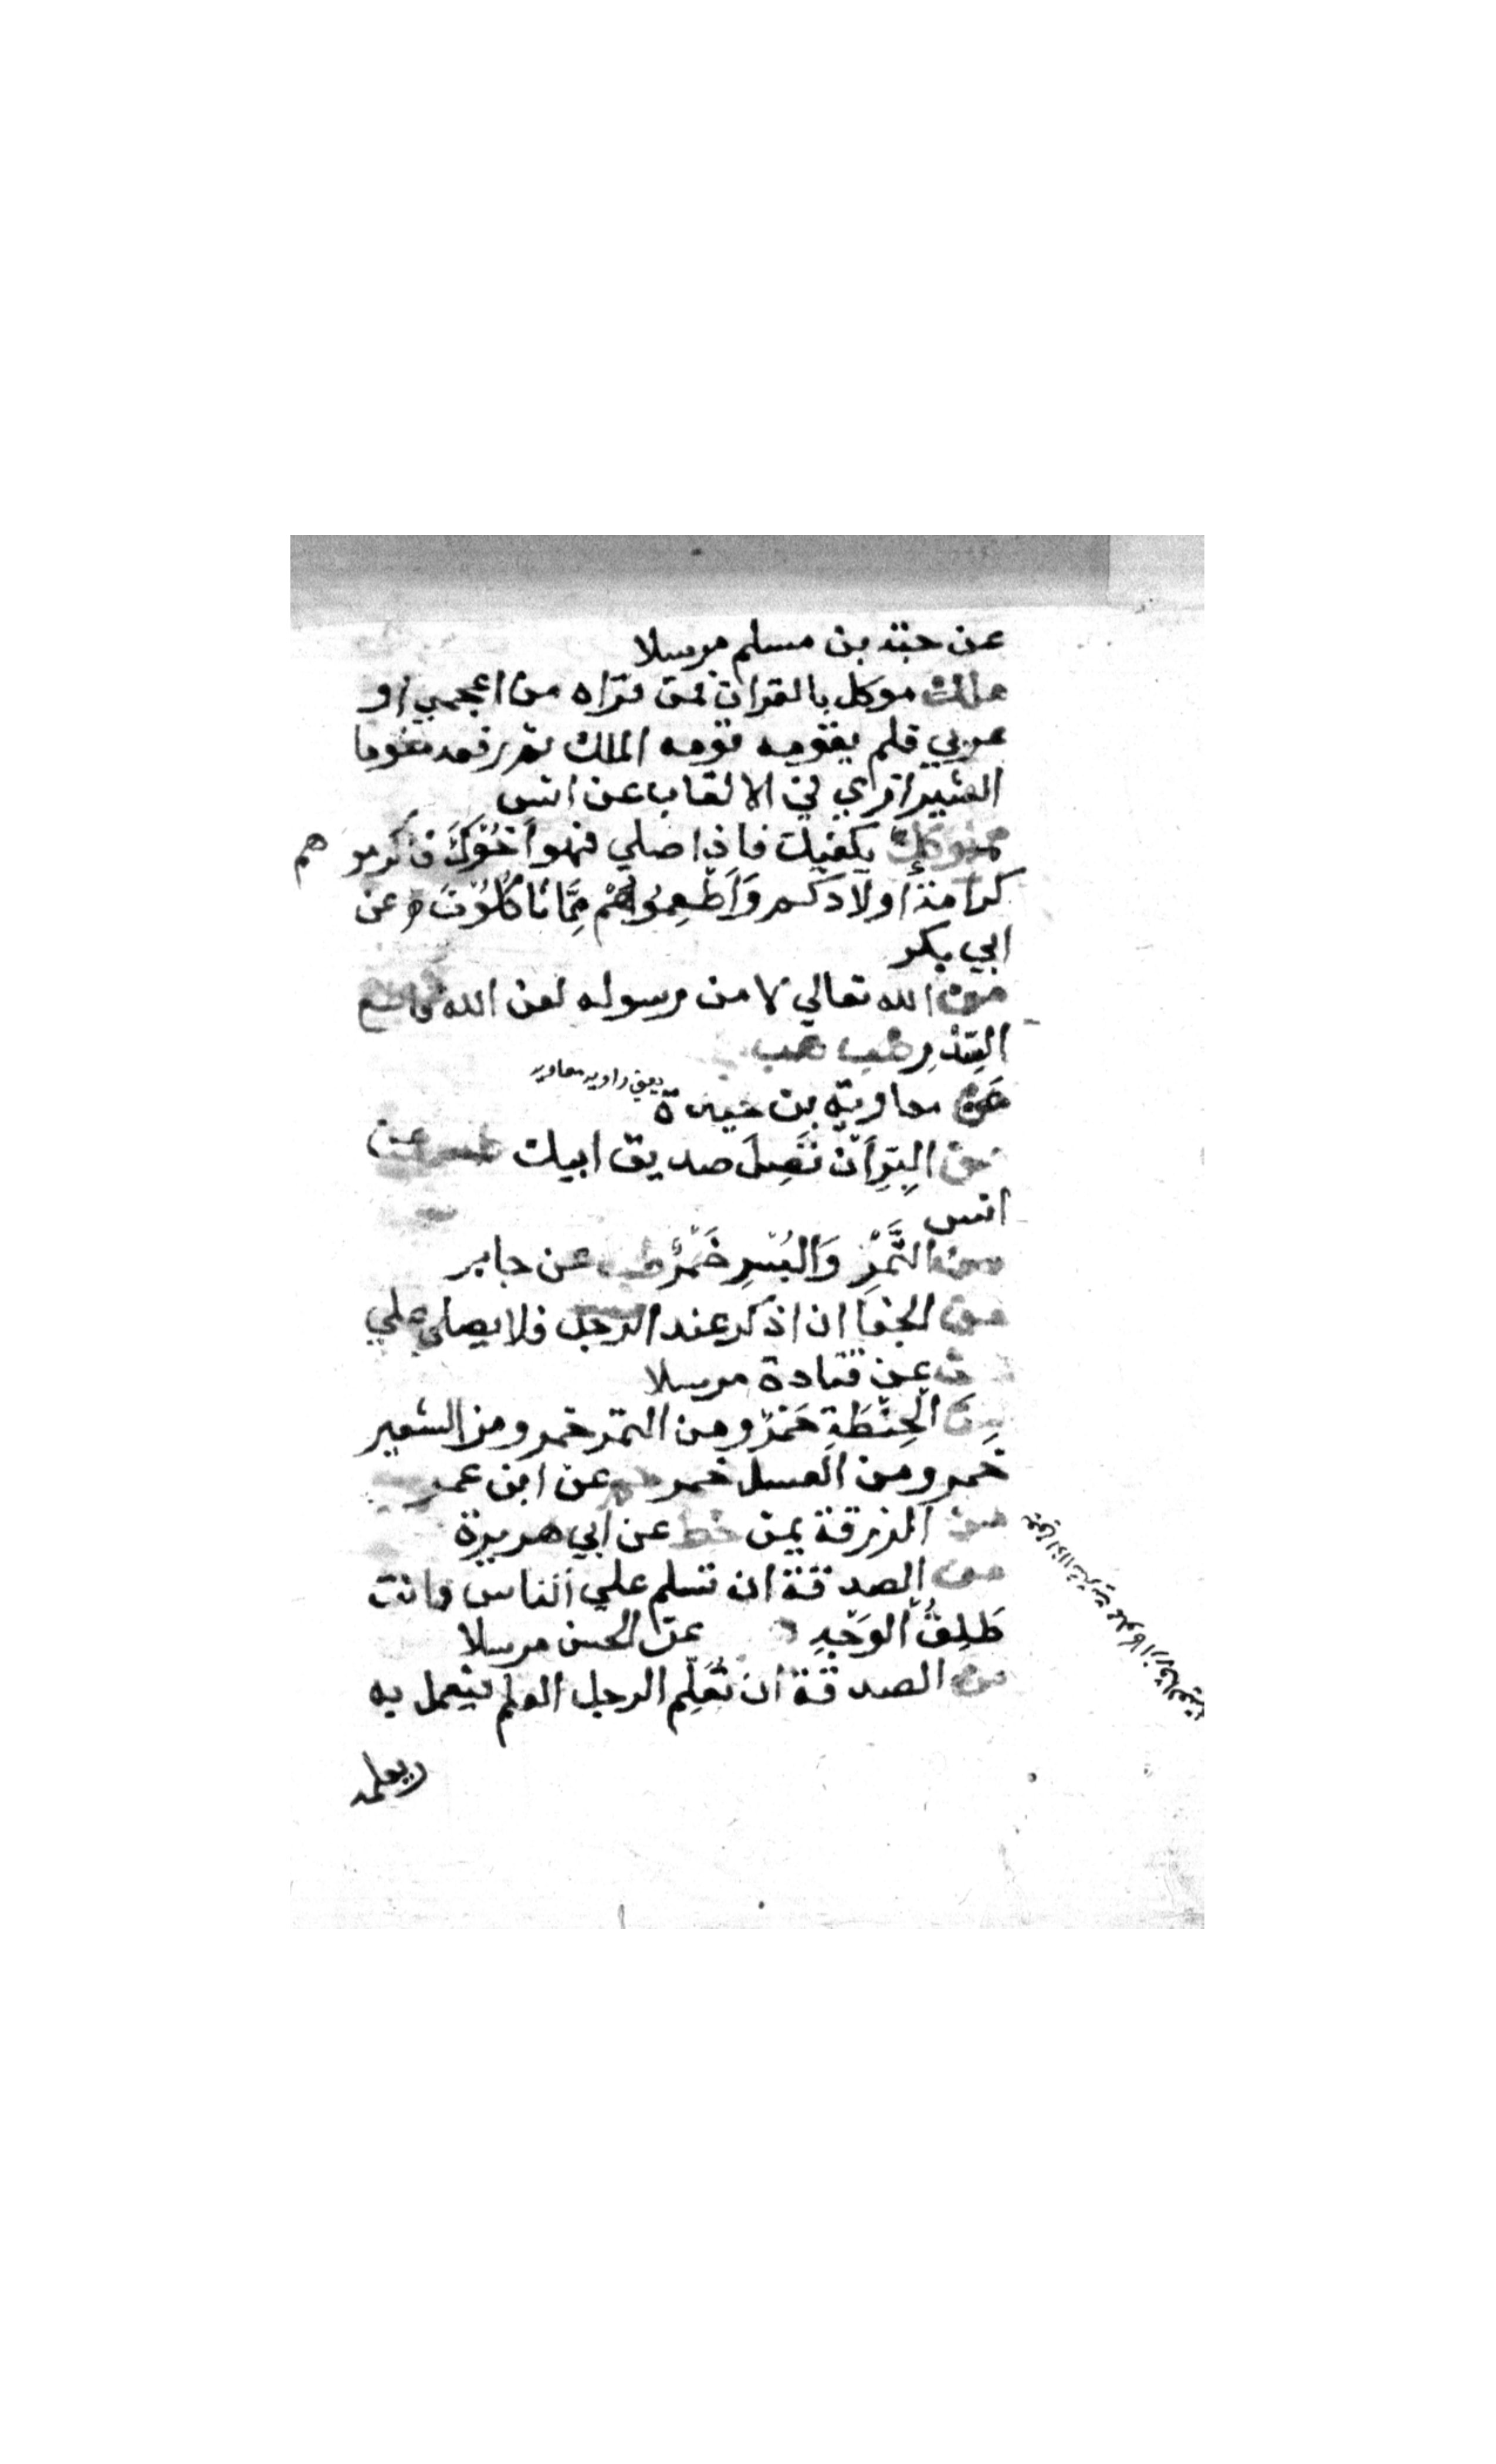 عن حبة بن مسلم مرسلا
ملك موكل بالقران فمن قراه من اعجمي او
عربي فلم يقومه قومه الملك ثم رفعه مقوما
الشيرازي في الالقاب عن انس
مملوكك يكفيك فاذا صلي فهو اَخُوكَ فاكرموهم
كرامة اولادكم وَاَطْعِمُوهُمْ مِمَّا تَاكُلُوْنَ ه عن
ابي بكر
من الله تعالي لا من رسوله لعن الله قاطع
السِّدْرِ طب هب
عن معاوية بن حيدة
يعني راويه معاويه
من البِرِّ اَنْ تَصِلَ صديق ابيك طس عن
انس
من التَّمْرِ وَالبُسْرِ خَمْرٌ طب عن جابر
من الجفا ان اذكر عند الرجل فلا يصلي علي
عن قتادة مرسلا
مِنَ الحِنْطَةِ خَمْرٌ ومن التمر خمر ومن الشعير
خَمر ومن العسل خمر حم عن ابن عمر
من الزرقة يمن خط عن ابي هريرة
من الصدقة ان تسلم علي الناس وانت
طَلِقُ الوَجْهِ عن الحسن مرسلا
من الصدقة ان تُعَلِّم الرجل العلم فيعمل به
ويعلمه